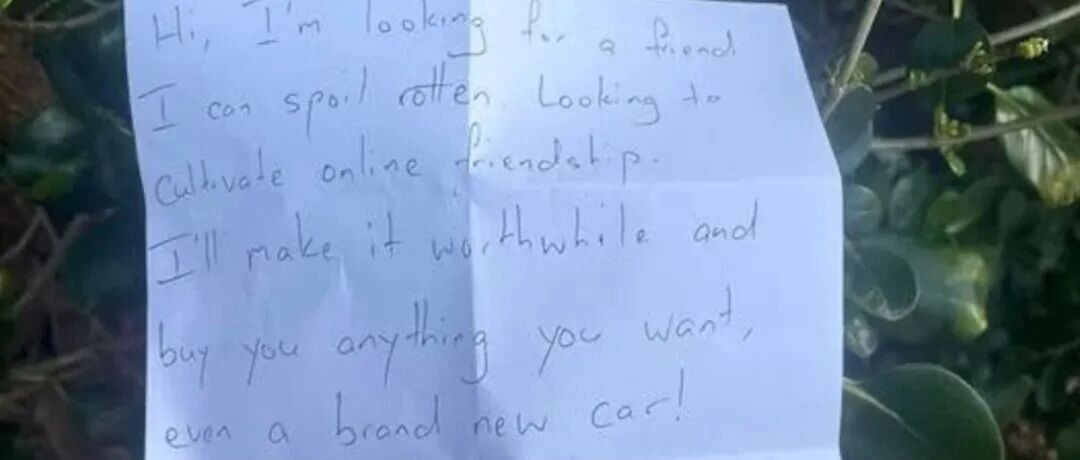 Hi, I'm looking for a friend
I can spoil rotten. Looking to
cultivate online friendship.
I'll make it worthwhile and
buy you anything you want,
even a brand new car!